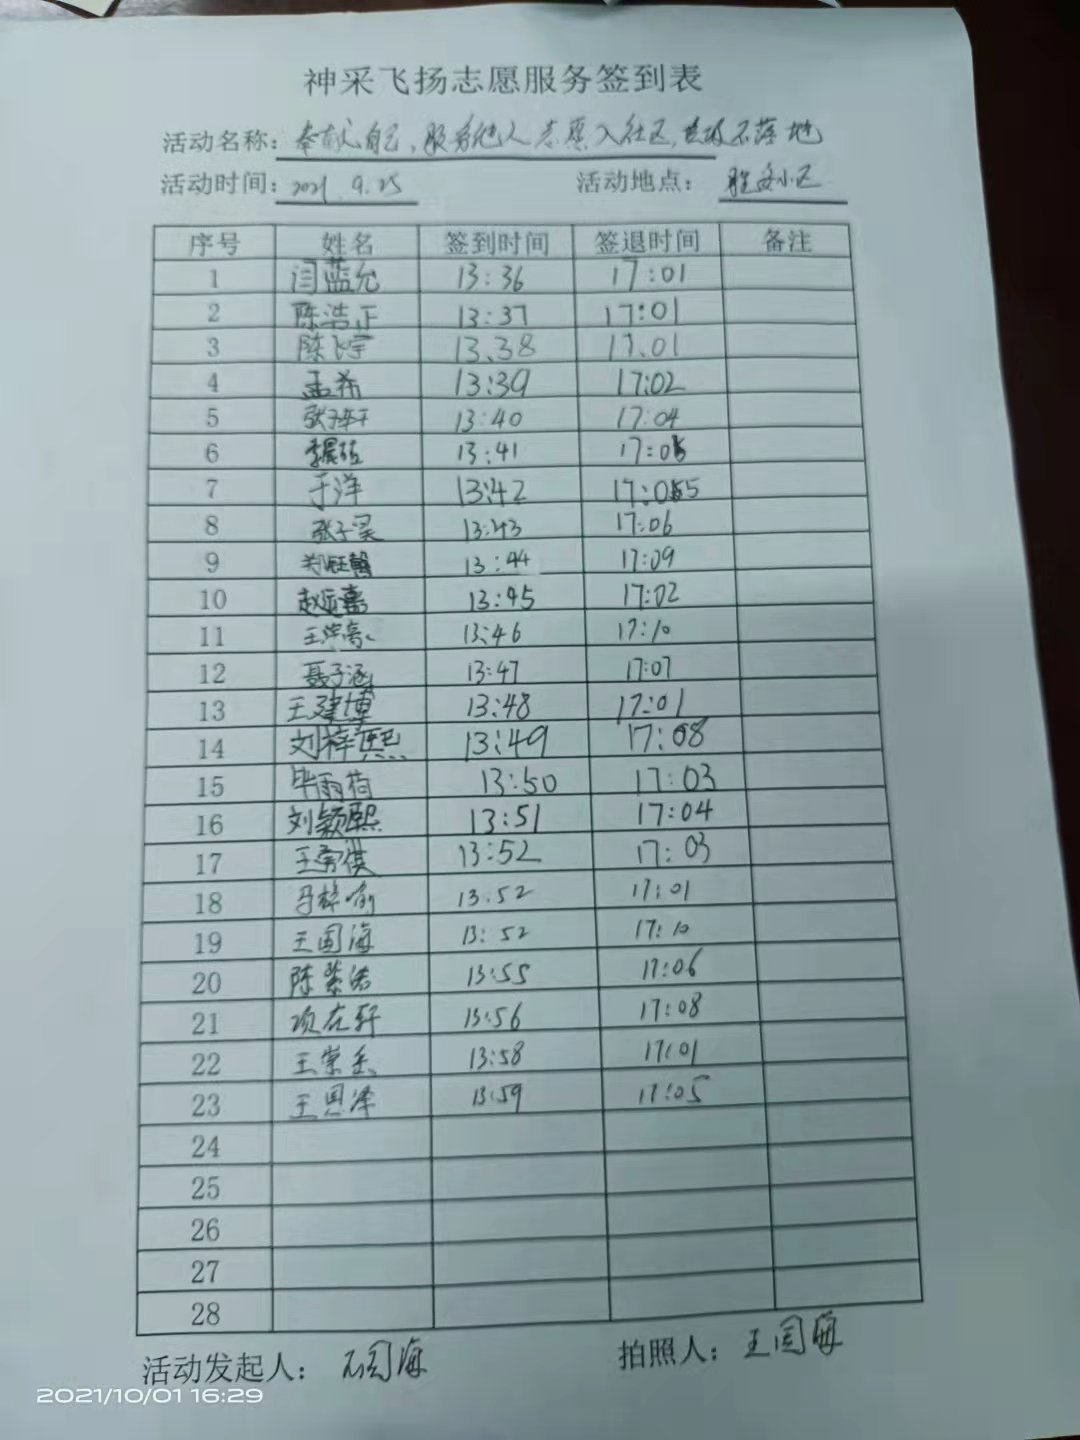 神采飞扬志愿服务签到表
活动名称：奉献自己，服务他人 志愿入社区，垃圾不落地
活动时间：2021.9.25 活动地点：小区
序号 姓名 签到时间 签退时间 备注
1 闫蓝允 13:36 17:01
2 陈浩正 13:37 17:01
3 陈飞宇 13.38 17.01
4 孟希 13:39 17:02
5 张 13:40 17:04
6 李晨 13:41 17:05
7 于洋 13:42 17:05
8 张子昊 13:43 17:06
9 郑钰馨 13:44 17:09
10 赵嘉 13:45 17:02
11 王 13:46 17:10
12 聂子涵 13:47 17:07
13 王建博 13:48 17:01
14 刘梓熙 13:49 17:08
15 毕雨荷 13:50 17:03
16 刘颖熙 13:51 17:04
17 王淇 13:52 17:03
18 马梓喻 13:52 17:01
19 王国海 13:52 17:10
20 陈紫涵 13:55 17:06
21 项在轩 13:56 17:08
22 王崇 13:58 17:01
23 王恩泽 13:59 17:05
24
25
26
27
28
活动发起人：王国海 拍照人：王国海
2021/10/01 16:29